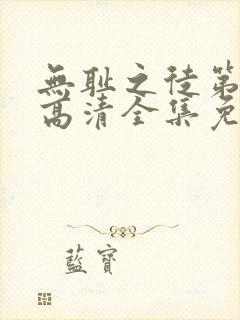 無耻之徒第
高清全集免
藍寶